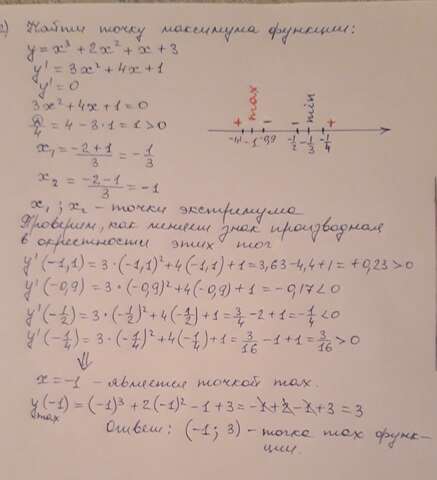 c) Найти точку максимума функции:
y = x³ + 2x² + x + 3
y' = 3x² + 4x + 1
y' = 0
3x² + 4x + 1 = 0
D/4 = 4 - 3·1 = 1 > 0
x₁ = (-2+1)/3 = -1/3
x₂ = (-2-1)/3 = -1
max min
+ - - +
-1,1 -1 -0,9 -1/2 -1/3 -1/4 x
x₁; x₂ - точки экстремума
Проверим, как меняет знак производная
в окрестности этих точ
y'(-1,1) = 3·(-1,1)² + 4(-1,1) + 1 = 3,63 - 4,4 + 1 = +0,23 > 0
y'(-0,9) = 3·(-0,9)² + 4(-0,9) + 1 = -0,17 < 0
y'(-1/2) = 3·(-1/2)² + 4(-1/2) + 1 = 3/4 - 2 + 1 = -1/4 < 0
y'(-1/4) = 3·(-1/4)² + 4(-1/4) + 1 = 3/16 - 1 + 1 = 3/16 > 0
⇓
x = -1 - является точкой max.
y(-1) = (-1)³ + 2(-1)² - 1 + 3 = -1 + 2 - 1 + 3 = 3
max
Ответ: (-1; 3) - точка max функ-
ции.